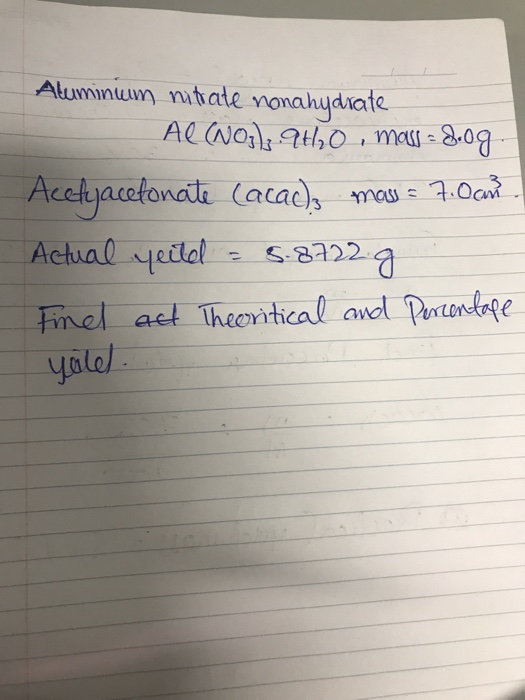 Aluminium nitrate nonahydrate
Al(NO₃)₃·9H₂O, mass = 8.0g
Acetyacetonate (acac)₃ mass = 7.0cm³.
Actual yeild = 5.8722 g
Find act Theoritical and Percentage
yeild.